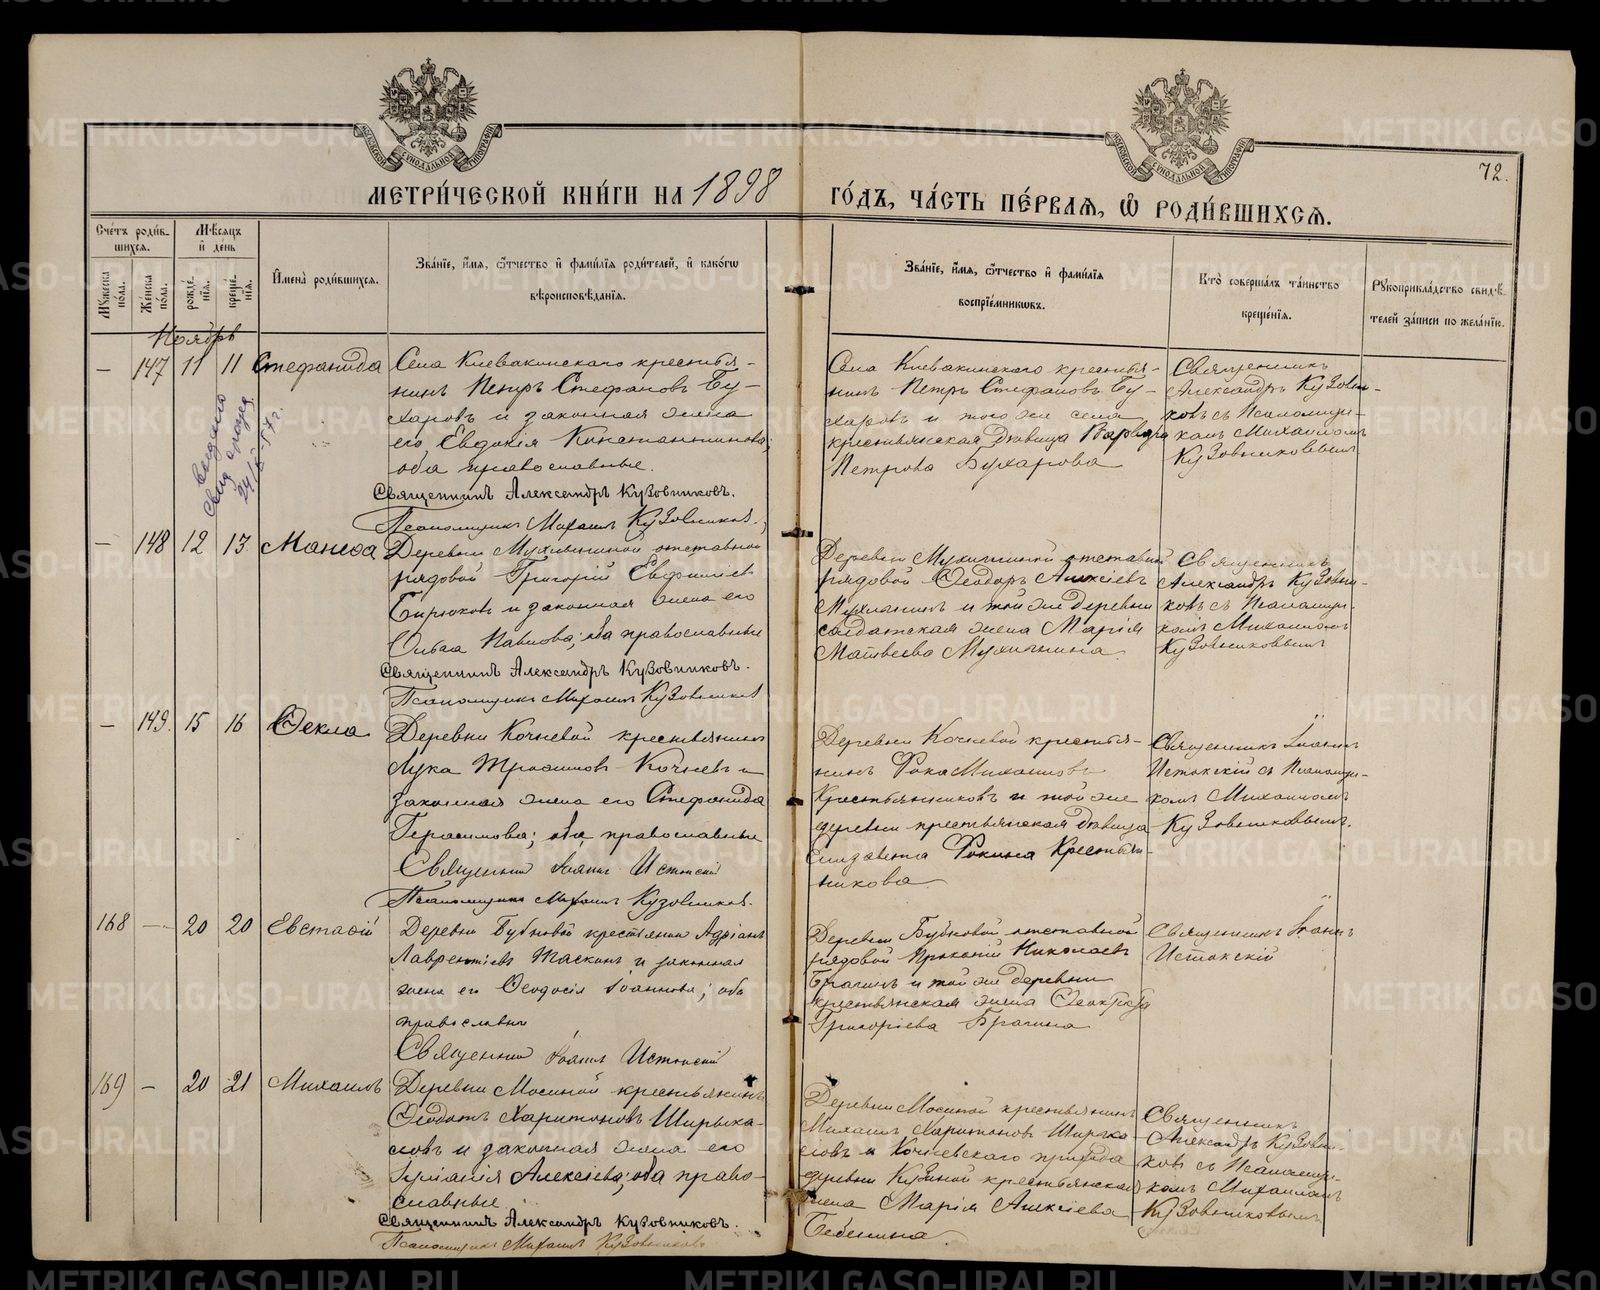 72.
МЕТРИ́ЧЕСКОЙ КНИ́ГИ НА 1898 ГО́ДЪ, ЧА́СТЬ ПЕ́РВАЯ, Ѡ҆ РОДИ́ВШИХСЯ.
Сче́тъ роди́в-
шихся.
Мѣ́сяцъ
и҆ де́нь
Му́жеска по́ла.
Же́нска по́ла.
рожде́-
нїя.
креще́-
нїя.
И҆мена̀ роди́вшихся.
Зва́нїе, и҆́мя, ѻ҆́тчество и҆ фами́лїя роди́телей, и҆ како́гѡ
вѣроисповѣ́данїя.
Зва́нїе, и҆́мя, ѻ҆́тчество и҆ фами́лїя
воспрїе́мникѡвъ.
Кто̀ соверша́лъ та́инство
креще́нїя.
Рꙋкоприкла́дство свидѣ́-
телей за́писи по жела́нїю.
Ноябрь
— 147 11 11 Стефанида
Села Клевакинскаго крестья-
нинъ Петръ Стефановъ Бу-
харовъ и законная жена
его Евдокія Константинова;
оба православные.
Священникъ Александръ Кузовниковъ.
Псаломщикъ Михаилъ Кузовниковъ.
Села Клевакинскаго крестья-
нинъ Петръ Стефановъ Бу-
харовъ и того же села
крестьянская дѣвица Варвара
Петрова Бухарова
Священникъ
Александръ Кузовни-
ковъ съ Псаломщи-
комъ Михаиломъ
Кузовниковымъ
Выдано
— 148 12 13
Деревни Мухлыниной отставной
рядовой Григорій
Бирюковъ и законная жена его
Ольга Павлова; оба православные
Священникъ Александръ Кузовниковъ.
Псаломщикъ Михаилъ Кузовниковъ
Деревни Мухлыниной отставной
рядовой Ѳеодоръ Алексіевъ
Мухлынинъ и той же деревни
солдатская жена Марія
Матвѣева Мухлынина.
Священникъ
Александръ Кузовни-
ковъ съ Псаломщи-
комъ Михаиломъ
Кузовниковымъ
— 149. 15 16 Ѳекла
Деревни Кочневой крестьянинъ
Лука Трофимовъ Кочневъ и
законная жена его Стефанида
Герасимова; оба православные
Священникъ Іоаннъ Истокскій
Псаломщикъ Михаилъ Кузовниковъ.
Деревни Кочневой крестья-
нинъ Фока Михаиловъ
Крестьянниковъ и той же
деревни крестьянская дѣвица
Елизавета Фокина Крестьян-
никова.
Священникъ Іоаннъ
Истокскій съ Псаломщи-
комъ Михаиломъ
Кузовниковымъ.
168 — 20 20 Евстафій
Деревни Бубновой крестьянинъ Адріанъ
Лаврентіевъ Таскинъ и законная
жена его Ѳеодосія Іоаннова; оба
православные
Священникъ Іоаннъ Истокскій
Деревни Бубновой отставной
рядовой Прокопій Николаевъ
Брагинъ и той же деревни
крестьянская жена
Григоріева Брагина
Священникъ Іоаннъ
Истокскій
169 — 20 21 Михаилъ
Деревни Мосиной крестьянинъ
Ѳеодотъ Харитоновъ Ширыка-
ловъ и законная жена его
Іуліанія Алексіева; оба право-
славные
Священникъ Александръ Кузовниковъ.
Псаломщикъ Михаилъ Кузовниковъ
Деревни Мосиной крестьянинъ
Михаилъ Харитоновъ Ширыка-
ловъ и Кочневскаго прихода
деревни крестьянская
жена Марія Алексіева
Бебенина.
Священникъ
Александръ Кузовни-
ковъ съ Псаломщи-
комъ Михаиломъ
Кузовниковымъ
METRIKI.GASO-URAL.RU